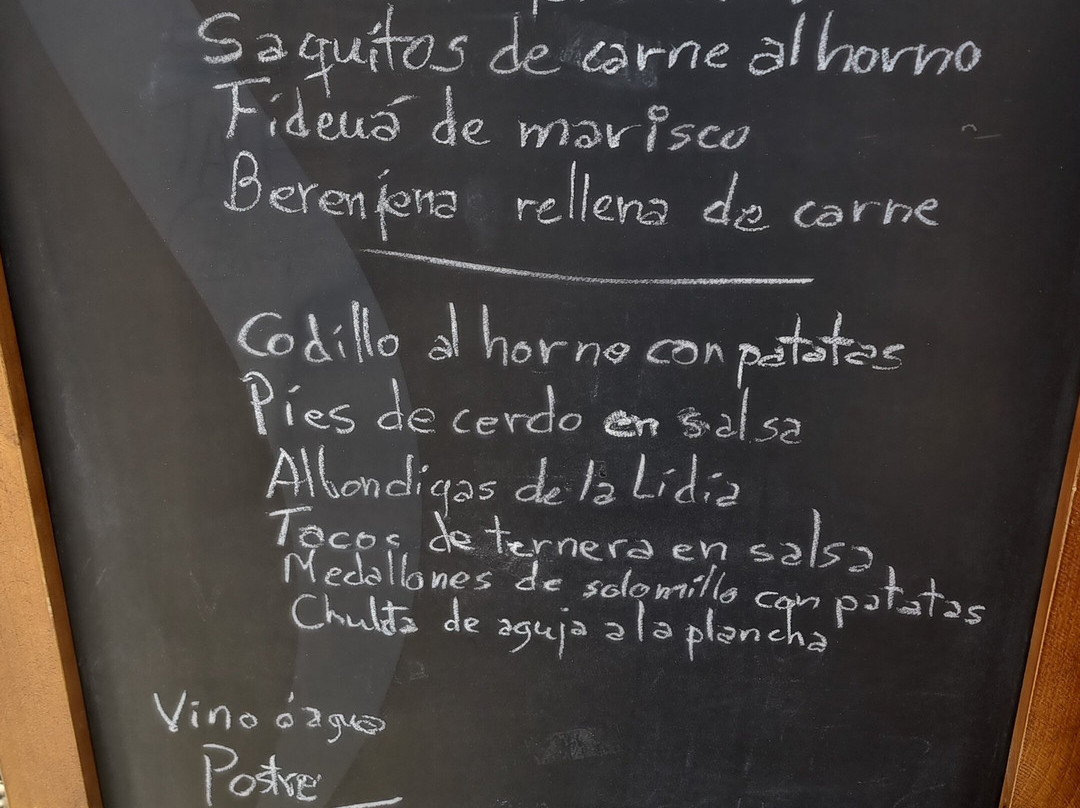 Saquitos de carne al horno
Fideuá de marisco
Berenjena rellena de carne
Codillo al horno con patatas
Pies de cerdo en salsa
Albondigas de la Lidia
Tacos de ternera en salsa
Medallones de solomillo con patatas
Chuleta de aguja a la plancha
Vino ó agua
Postre